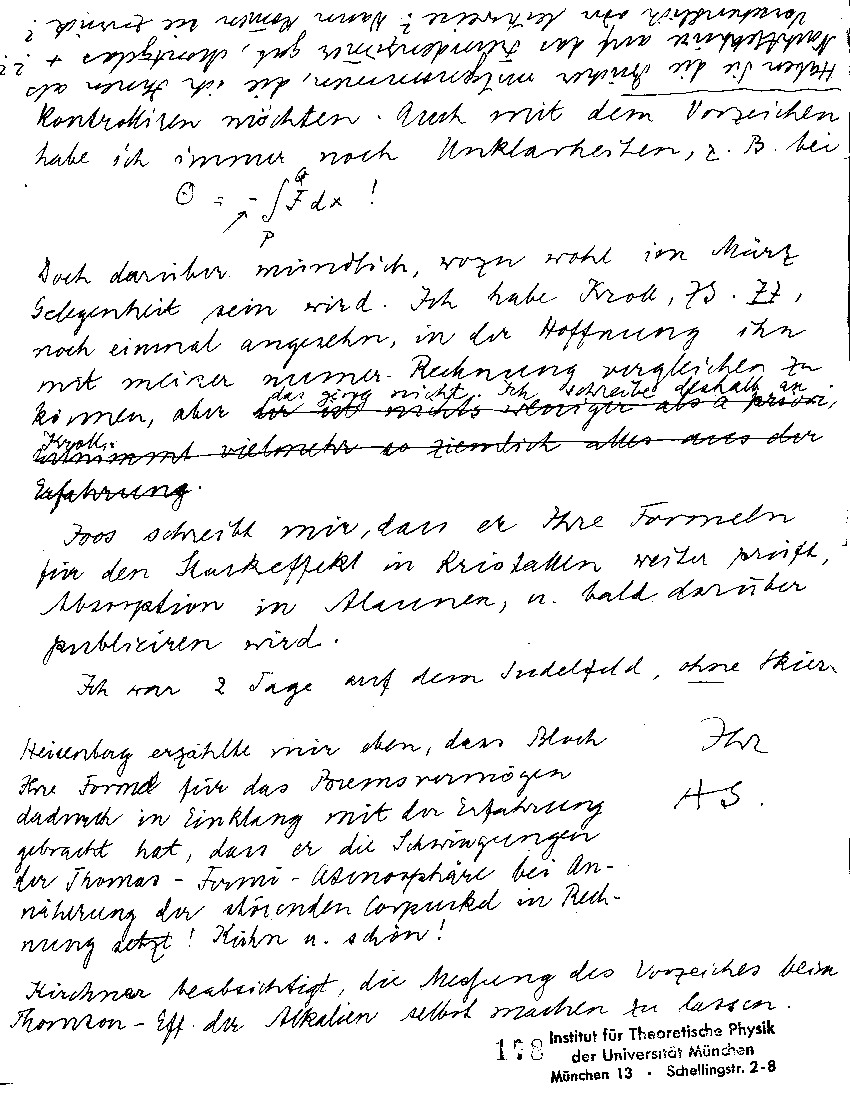 Haben Sie die Bücher mitgenommen, die ich Ihnen als
Nachtlektüre auf das Fremdenzimmer gab, Montgelas + ??
Vorschundlich oder leihweise? Wann kommen sie zurück?
kontrolliren möchten. Auch mit dem Vorzeichen
habe ich immer noch Unklarheiten, z. B. bei
Θ = - ∫ F dx !
Q
P
Doch darüber mündlich, wozu wohl im März
Gelegenheit sein wird. Ich habe Kroll, ZS. 77,
noch einmal angesehn, in der Hoffnung ihn
mit meiner numer. Rechnung vergleichen zu
das ging nicht. Ich schreibe deshalb an
können, aber er ist nichts weniger als a priori,
Kroll.
entnimmt vielmehr so ziemlich alles aus der
Erfahrung.
Joos schreibt mir, dass er Ihre Formeln
für den Starkeffekt in Kristallen weiter prüft,
Absorption in Alaunen, u. bald darüber
publiciren wird.
Ich war 2 Tage auf dem Sudelfeld, ohne Skier.
Ihr
AS.
Heisenberg erzählte mir eben, dass Bloch
Ihre Formel für das Bremsvermögen
dadurch in Einklang mit der Erfahrung
gebracht hat, dass er die Schwingungen
der Thomas-Fermi-Atmosphäre bei An-
näherung der störenden Corpuskel in Rech-
nung setzt! Kühn u. schön!
Kirchner beabsichtigt, die Messung des Vorzeiches beim
Thomson-Eff. der Alkalien selbst machen zu lassen.
Institut für Theoretische Physik
der Universität München
München 13 · Schellingstr. 2-8